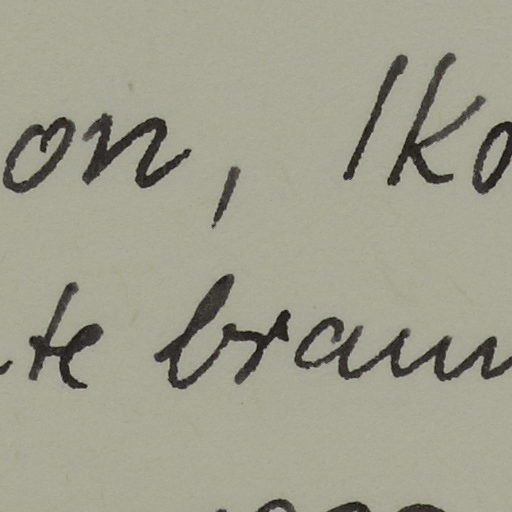 on, Iko
te braun